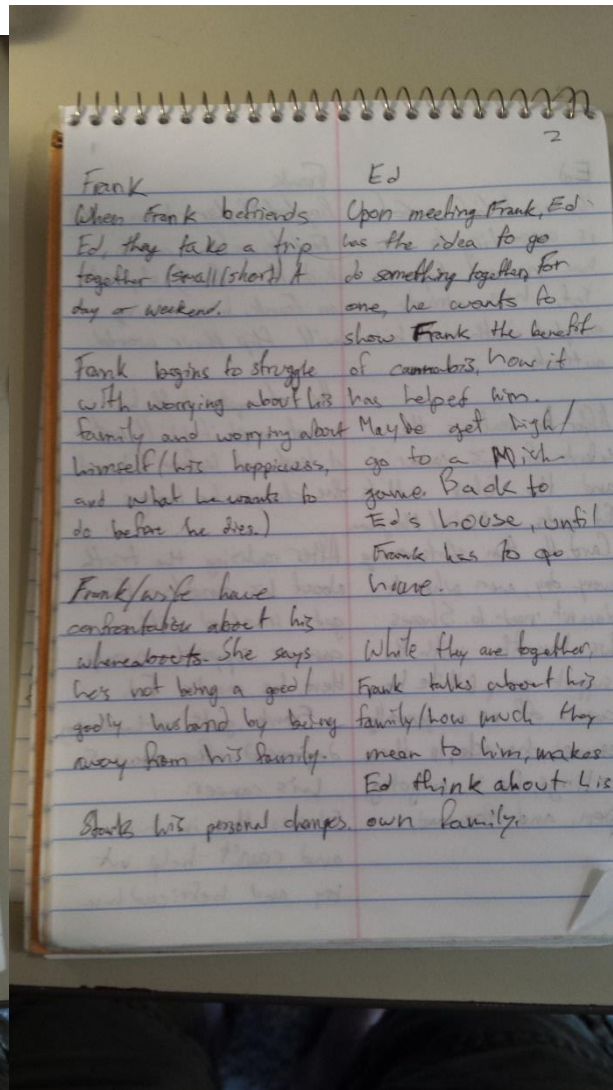 2
Frank
When Frank befriends
Ed, they take a trip
together (small/short) A
day or weekend.
Frank begins to struggle
with worrying about his
family and worrying about
himself/his happiness,
and what he wants to
do before he dies.)
Frank/wife have
confrontation about his
whereabouts. She says
he's not being a good/
godly husband by being
away from his family.
Starts his personal changes.
Ed
Upon meeting Frank, Ed
has the idea to go
do something together, for
one, he wants to
show Frank the benefit
of cannabis, how it
has helped him.
Maybe get high/
go to a Mich
game. Back to
Ed's house, until
Frank has to go
home.
While they are together,
Frank talks about his
family/how much they
mean to him, makes
Ed think about his
own family.